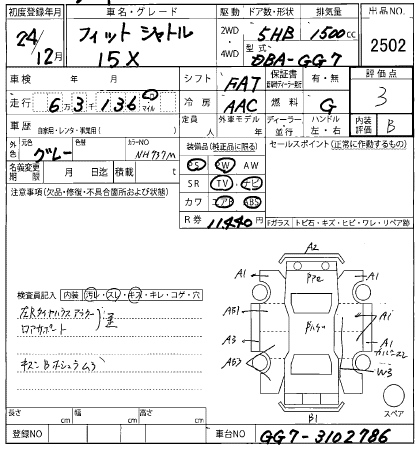 初度登録年月 車名・グレード 駆動 ドア数・形状 排気量 出品NO.
24/12月 フィット シャトル 15X 2WD・4WD 5HB 1500cc 2502
型式 DBA-GG7
車検 年 月 シフト FAT 保証書 有・無 評価点
走行 63136 マイル 冷房 AAC 燃料 G 3
車歴 自家用・レンタ・事業用( ) 乗車定員 人 外車モデル 年 ディーラー・並行 ハンドル 左・右 内装評価 B
外色 元色 グレー 色替 カラーNO NH737M 装備品(純正品に限る) セールスポイント(正常に作動するもの)
名義変更期限 月 日迄 積載 t PS PW AW
注意事項(欠品・修復・不具合箇所および状態) SR TV ナビ
カワ エアB ABS
R券 11440円
Fガラス トビ石・キズ・ヒビ・ワレ・リペア跡
A2
A1 A1
検査員記入 内装 汚レ・スレ・キズ・キレ・コゲ・穴
AB1 A1
A3 A1
AB3 W3
B1
スペア
長さ cm 幅 cm 高さ cm
登録NO 車台NO GG7-3102786